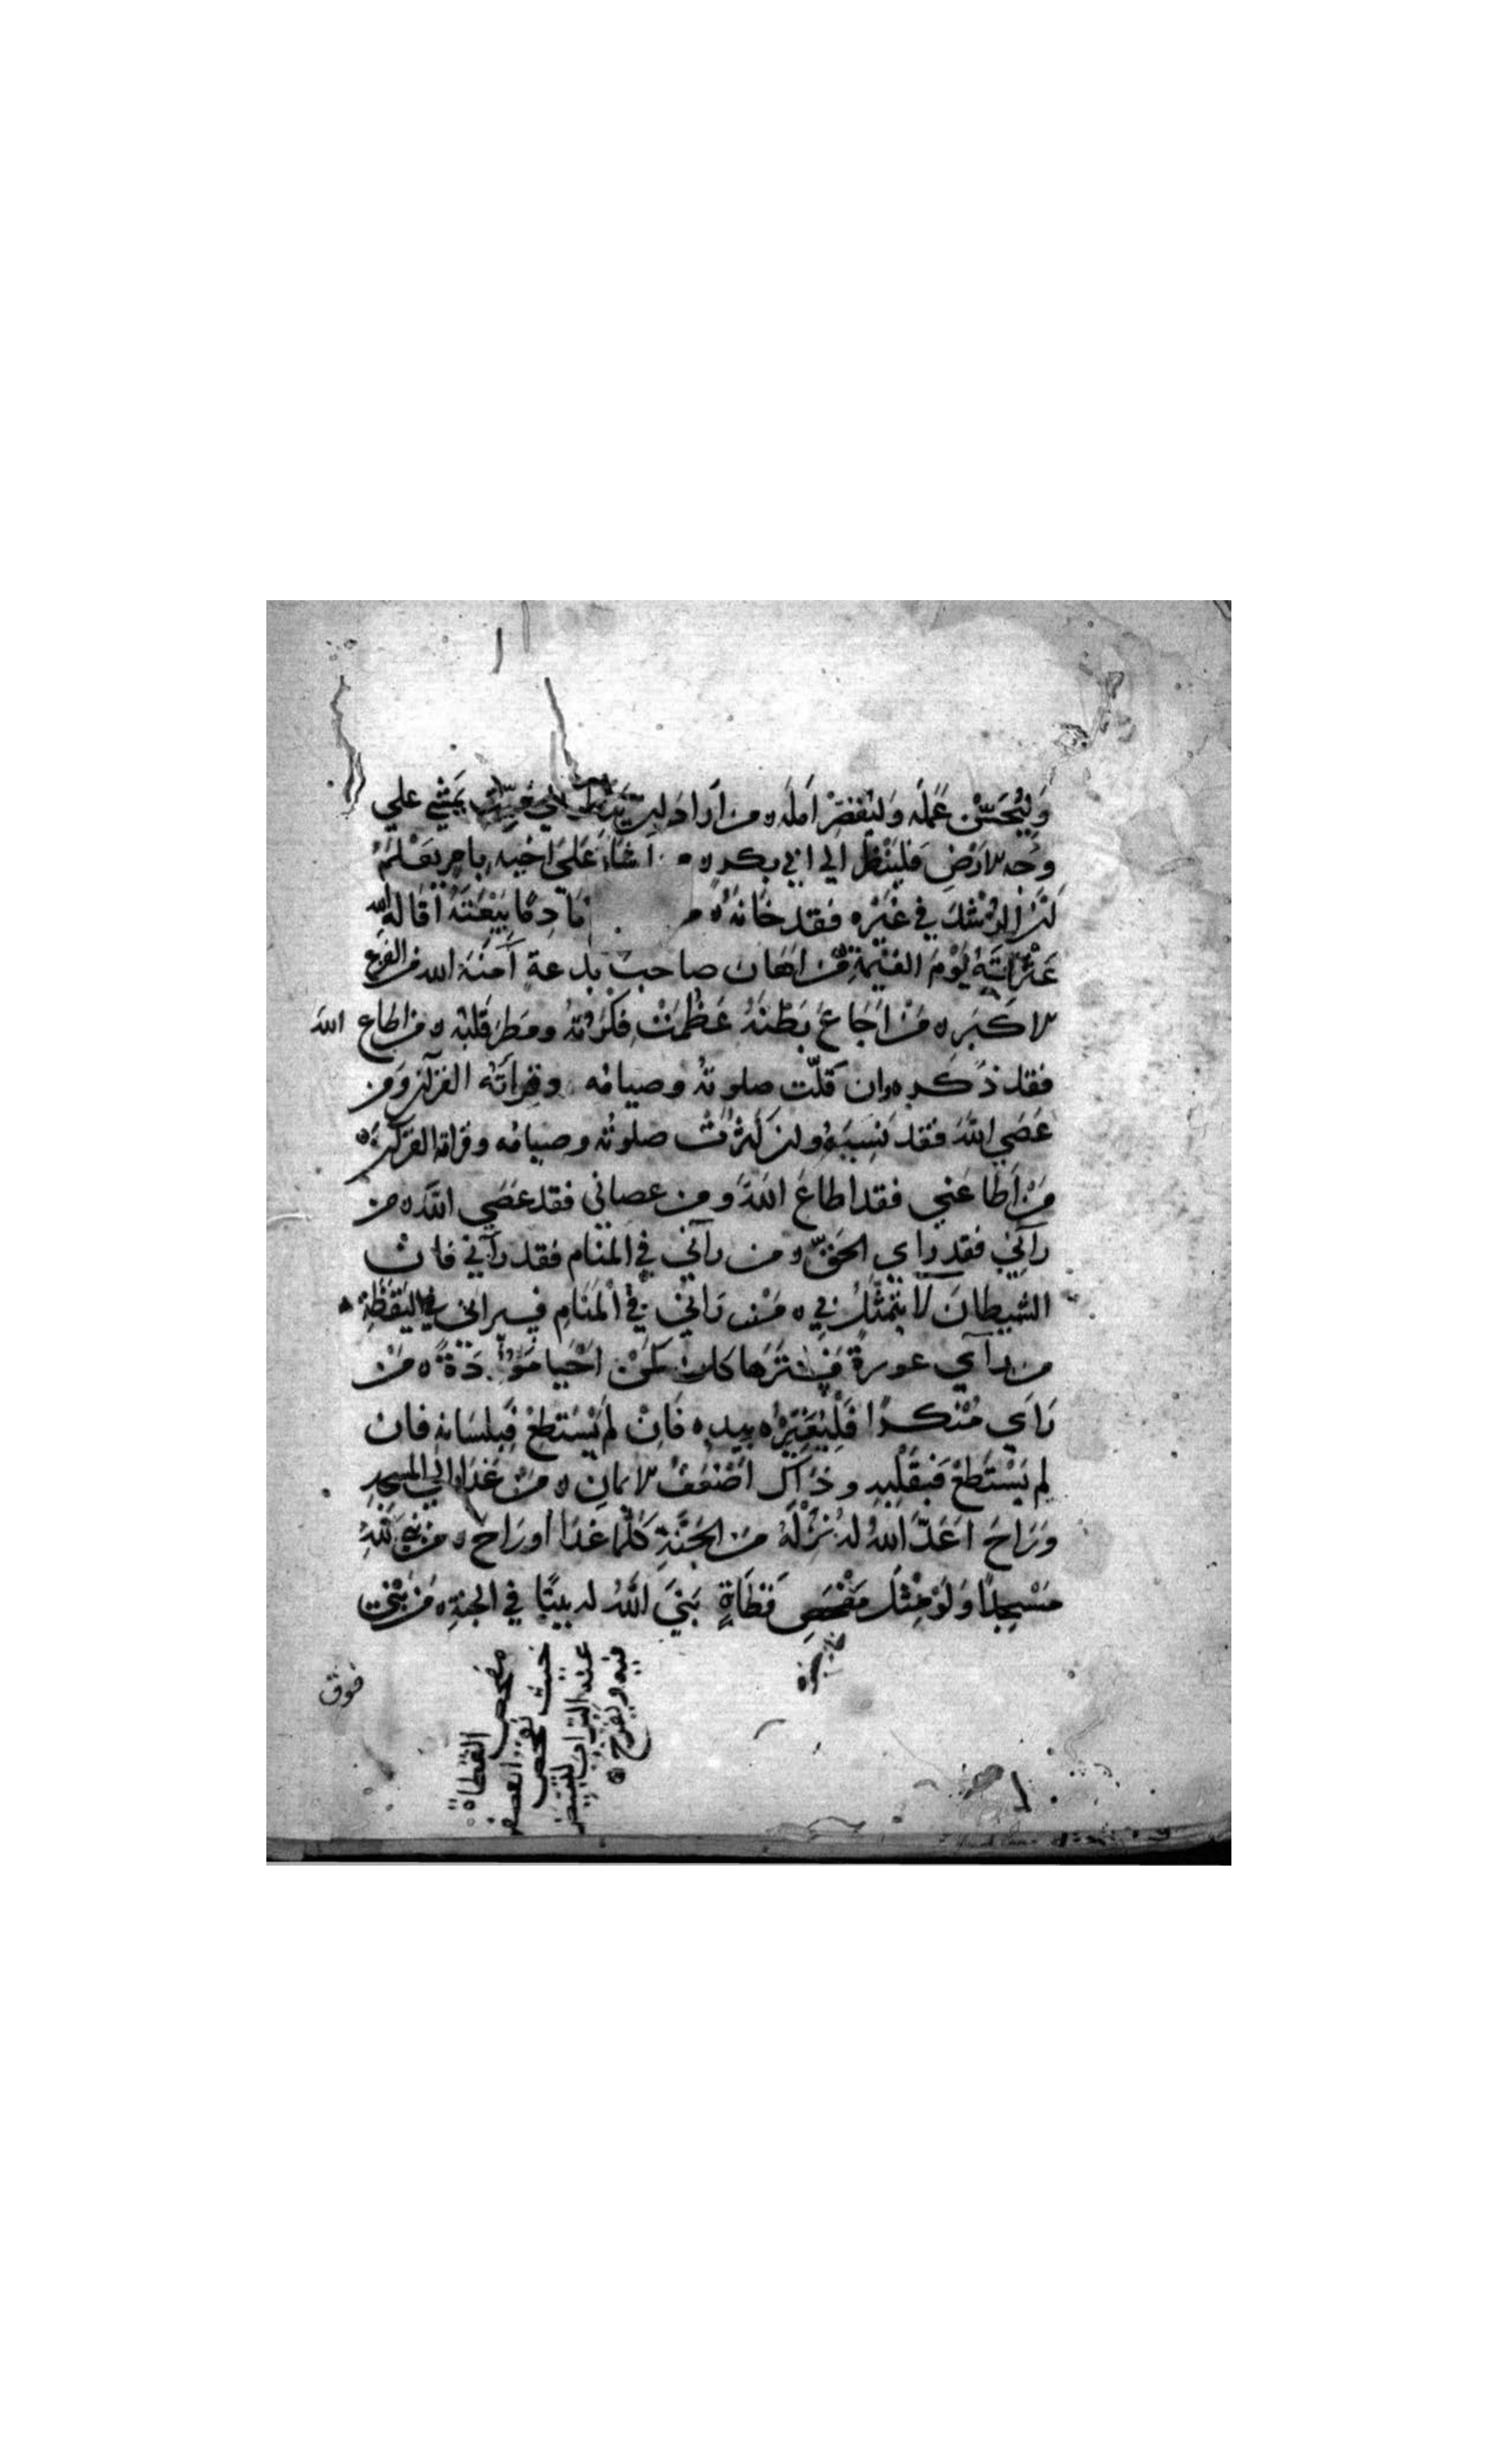 وَلْيُحَسِّنْ عَمَلَه وَليُقصِرْ اَمَلَه ه من اَرادَ اَن يَنظرَ الي مَيّتٍ يَمْشِي علي
وَجْه الارْضِ فليَنْظُرْ الي ابي بكر ه ه اَشارَ عَلى اَخيه بامرٍ يَعْلَمُ
اَنَّ الرُّشْدَ في غَيْره فقد خَانَهُ ه م نَادِمًا بَيْعَتَهُ اَقَالَهُ الله
عَثْرَاتَهُ يَوْمَ القيٰمَةِ من اَهَانَ صاحبَ بِدعةٍ آمنَهُ الله من الفزع
الاكبَر ه مَنْ اَجَاعَ بَطْنَهُ عَظُمَتْ فِكْرَتُهُ وفطن قلبُه ه من اطاع الله
فقد ذكره وان قلّت صلوتُهُ وصيامُه وقِراَتُه القرآن ومن
عَصَي اللهَ فقد نَسِيَهُ وان كَثُرَتْ صلوتُه وصيامُه وقراته القرآن ه
مَنْ اَطَاعَني فقد اطاعَ اللهَ ومن عصاني فقد عَصَي اللهَ ه من
رآنِي فقد راي الحَقَّ ه من رآني في المنَام فقد رآني فان
الشيطانَ لا يتمَثَّلُ بي ه مَنْ رَانِي في الْمَنَامِ فسيراني في اليَقَظَةِ
من رآي عورةً فسَترَها كان كمَنْ اَحْيا مَوْؤُدَةً ه مَنْ
رَاي مُنْكرًا فَلْيُغَيِّرْهُ بيده فَانْ لم يَسْتَطِعْ فَبِلسَانهِ فان
لم يَسْتَطعْ فَبقَلْبهِ وذاكَ اَضْعَفُ الايمانِ ه مَنْ غَدَا الي المسجدِ
وَرَاحَ اَعَدَّ اللهُ لهُ نُزُلَهُ من الجَنَّةِ كلّما غَدَا او رَاحَ ه من بَنَي للهِ
مَسْجِدًا وَلَوْ مِثْلَ مَفْحَصِ قَطَاةٍ بَنَي اللهُ له بيتًا في الجنةِ ه من بَنَي
فوق
مفحص القطاة
حيث تفحص
عنه التراب لتبيض
فيه وتفرخ ه